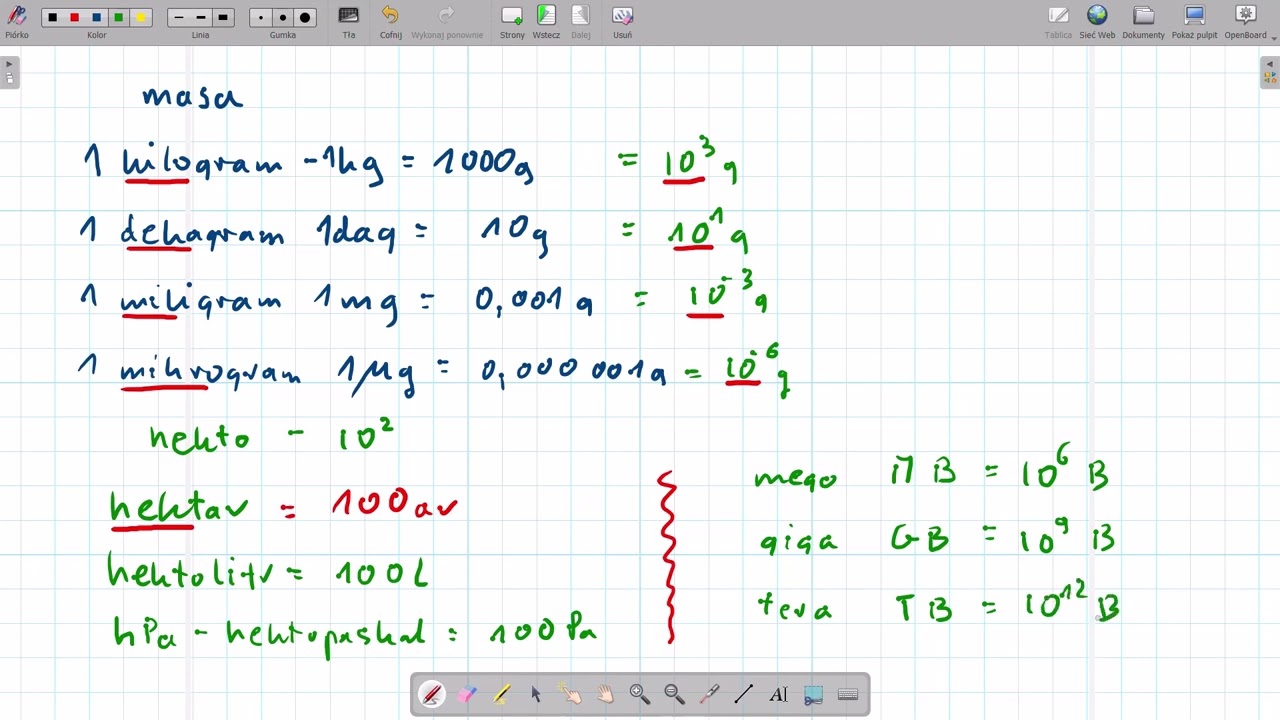 Piórko Kolor Linia Gumka Tła Cofnij Wykonaj ponownie Strony Wstecz Dalej Usuń Tablica Sieć Web Dokumenty Pokaż pulpit OpenBoard
masa
1 kilogram - 1kg = 1000g = 10³ g
1 dekagram 1dag = 10g = 10¹ g
1 miligram 1mg = 0,001g = 10⁻³ g
1 mikrogram 1µg = 0,000 001g = 10⁻⁶ g
hekto - 10²
hektar = 100 ar
hektolitr = 100 l
hPa - hektopaskal = 100 Pa
mega MB = 10⁶ B
giga GB = 10⁹ B
tera TB = 10¹² B
AI